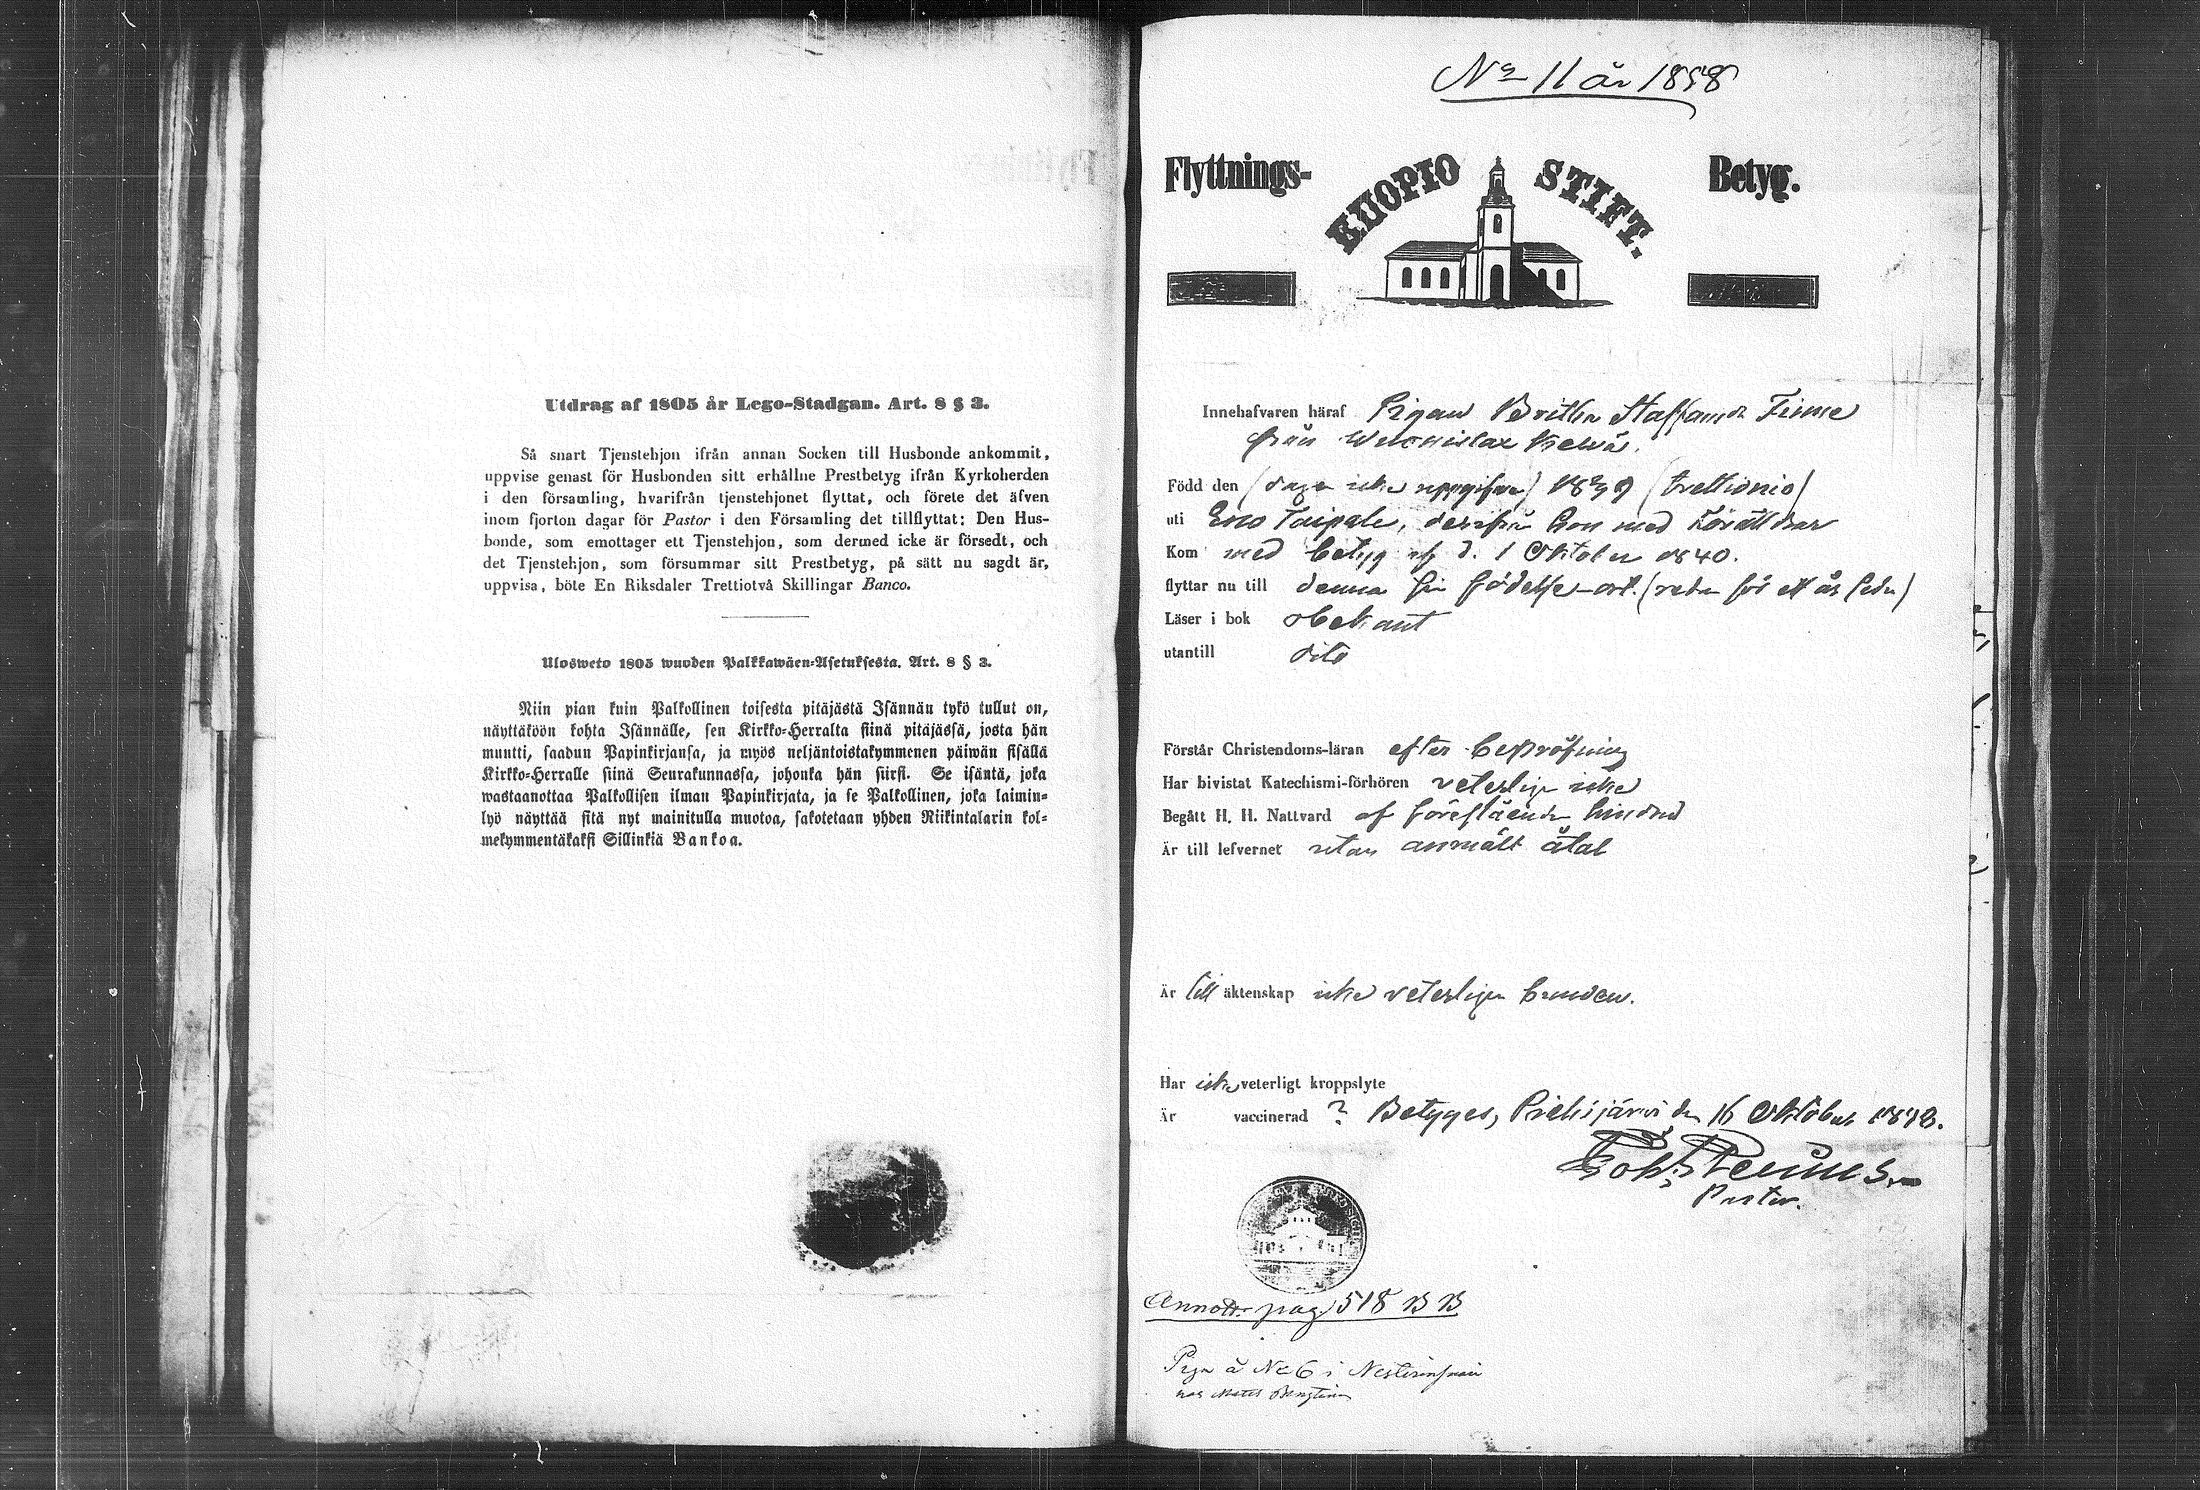 Utdrag af 1805 år Lego-Stadgan. Art. 8 § 3.
Så snart Tjenstehjon ifrån annan Socken till Husbonde ankommit,
uppvise genast för Husbonden sitt erhållne Prestbetyg ifrån Kyrkoherden
i den församling, hvarifrån tjenstehjonet flyttat, och förete det äfven
inom fjorton dagar för Pastor i den Församling det tillflyttat: Den Hus-
bonde, som emottager ett Tjenstehjon, som dermed icke är försedt, och
det Tjenstehjon, som försummar sitt Prestbetyg, på sätt nu sagdt är,
uppvisa, böte En Riksdaler Trettiotvå Skillingar Banco.
Ulosweto 1805 wuoden Palkkawäen-Asetuksesta. Art. 8 § 3.
Niin pian kuin Palkollinen toisesta pitäjästä Isännän tykö tullut on,
näyttäköön kohta Isännälle, sen Kirkko-Herralta siinä pitäjässä, josta hän
muutti, saadun Papinkirjansa, ja myös neljäntoistakymmenen päiwän sisällä
Kirkko-Herralle siinä Seurakunnassa, johonka hän siirsi. Se isäntä, joka
wastaanottaa Palkollisen ilman Papinkirjata, ja se Palkollinen, joka laimin-
lyö näyttää sitä nyt mainitulla muotoa, sakotetaan yhden Riikintalarin kol-
mekymmentäkaksi Sillinkiä Bankoa.
No 11 år 1858
Flyttnings- KUOPIO STIFT. Betyg.
Innehafvaren häraf Pigan Britha Staffansdr Finne
från
Född den (dagen icke uppgifven) 1839 (trettionio)
uti Eno Taipale, derifrån hon med Föräldrar
Kom med betyg af d. 1 Oktober 1840.
flyttar nu till denna sin födelse-ort. (redan för ett år sedan)
Läser i bok obekant
utantill dito
Förstår Christendoms-läran efter bepröfning
Har bivistat Katechismi-förhören veterligen icke
Begått H. H. Nattvard af förestående hinder
Är till lefvernet utan anmält åtal
Är till äktenskap icke veterligen bunden.
Har icke veterligt kroppslyte
Är vaccinerad ? Betyges, Pielisjärvi den 16 Oktober 1858.
Joh. Stenius
Pastor.
Annott. pag. 518 B B
Piga å No 6 i